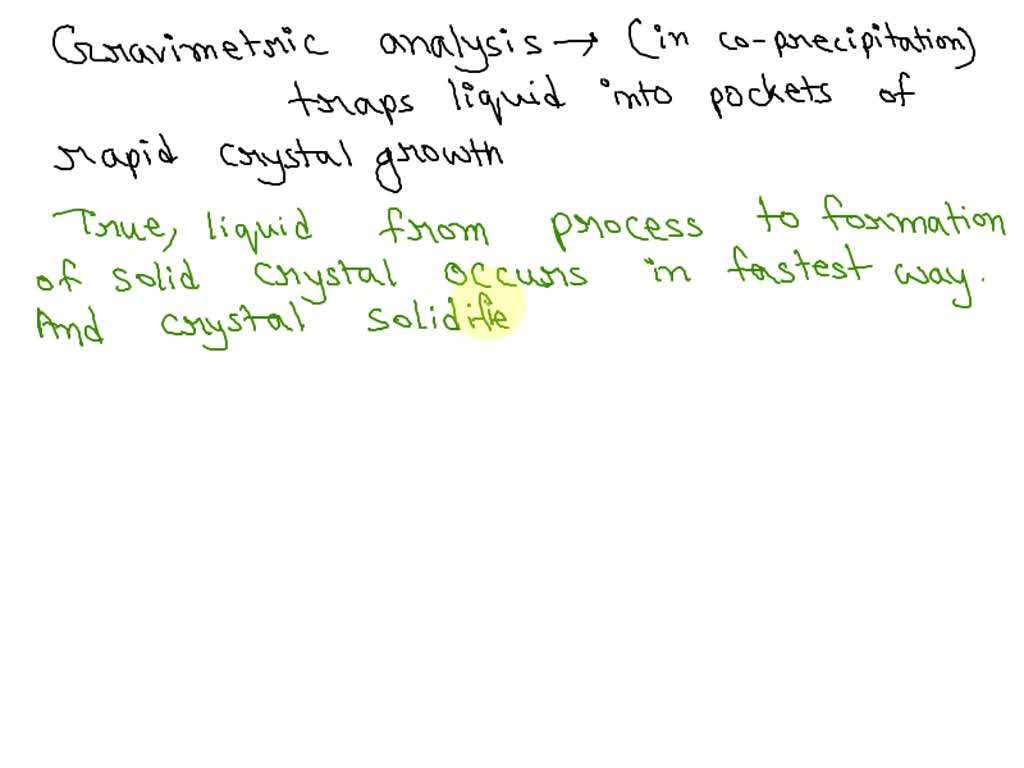 Gravimetric analysis → (in co-precipitation)
traps liquid into pockets of
rapid crystal growth
True, liquid from process to formation
of solid crystal occurs in fastest way.
And crystal solidifie